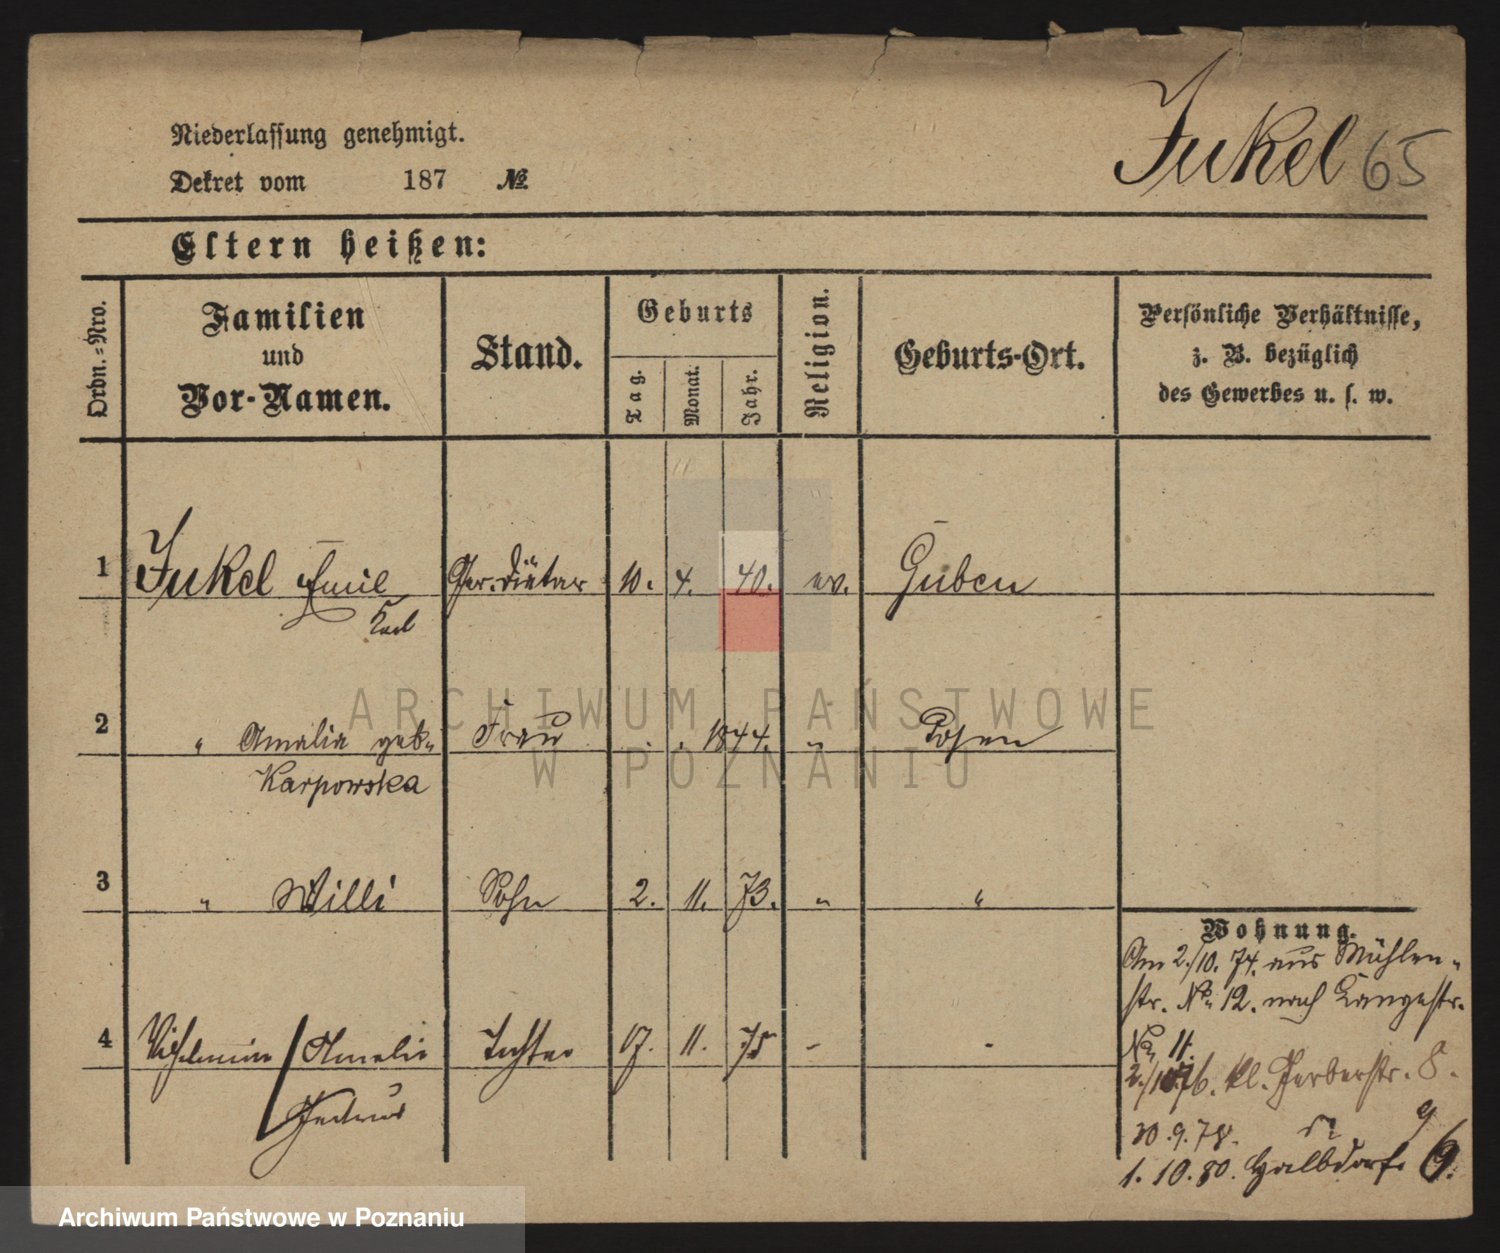 Niederlassung genehmigt.
Dekret vom 187 №
Jukel 65
Eltern heißen:
Ordn.=Nro.
Familien
und
Vor-Namen.
Stand.
Geburts
Tag.
Monat.
Jahr.
Religion.
Geburts-Ort.
Persönliche Verhältnisse,
z. B. bezüglich
des Gewerbes u. s. w.
1 Jukel Emil Ger. Diätar 10. 4. 40. ev. Guben
Karl
2 " Amalia geb. Frau 1844. " Posen
Karpowska
3 " Willi Sohn 2. 11. 73. " "
Wohnung.
Am 2./10. 74. aus Mühlen-
str. No. 12. nach Langestr.
No. 11.
4 Wilhelmine / Amalie Tochter 17. 11. 75 - -
2./10 76. kl. Gerberstr. 8.
Gertrud
30.9.78. 9
1. 10. 80. Halbdorf. 6.
ARCHIWUM PAŃSTWOWE
W POZNANIU
Archiwum Państwowe w Poznaniu